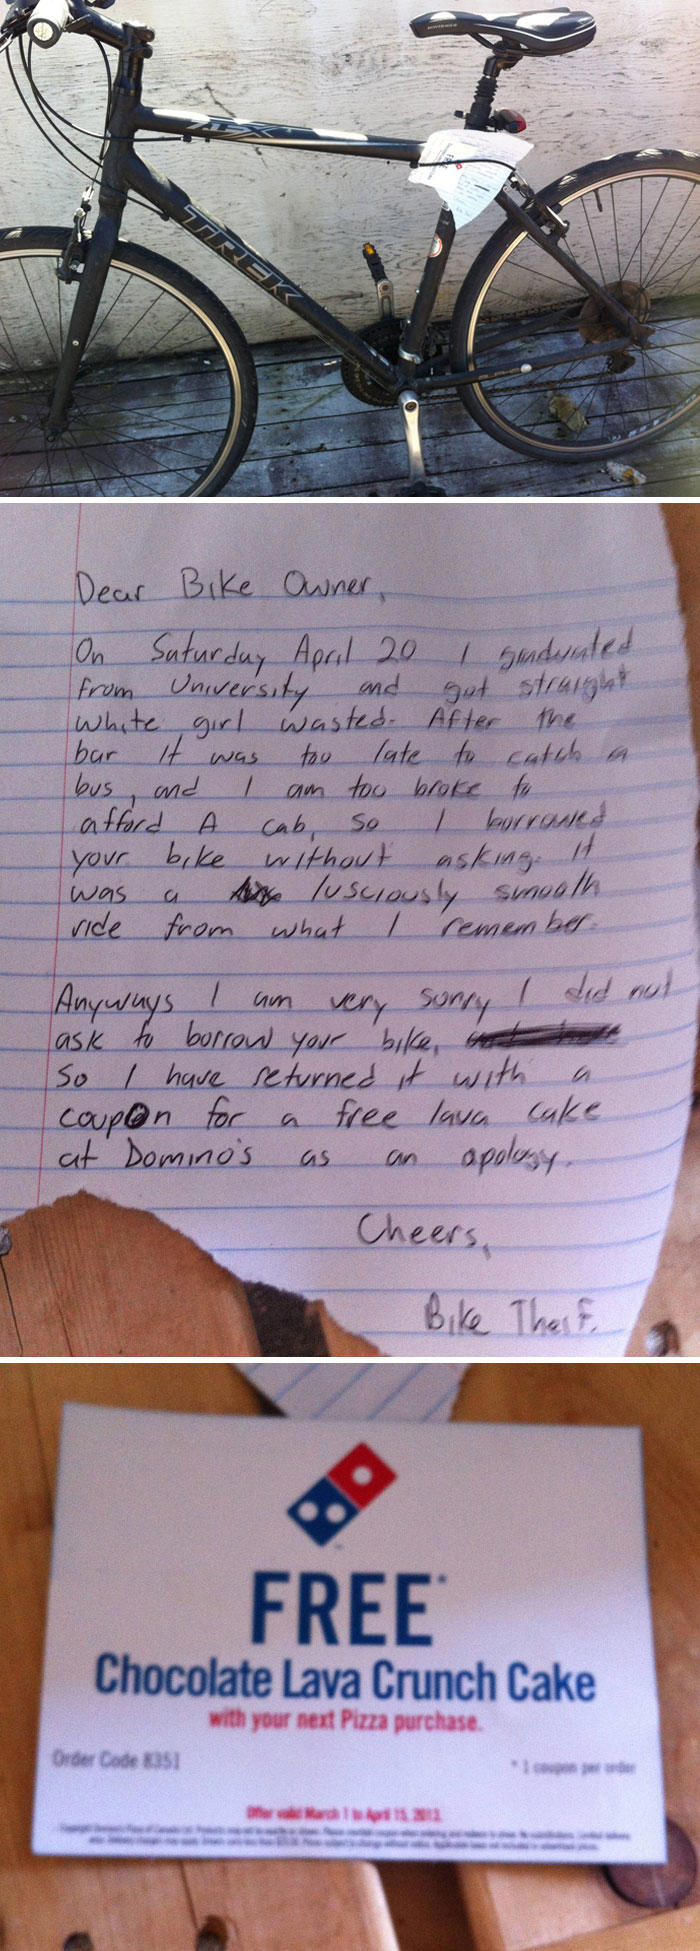 7.1SX
TREK
Dear Bike Owner,
On Saturday April 20 I graduated
from University and got straight
white girl wasted. After the
bar it was too late to catch a
bus, and I am too broke to
afford A cab, so I borrowed
your bike without asking. It
was a lusciously smooth
ride from what I remember.
Anyways I am very sorry I did not
ask to borrow your bike,
So I have returned it with a
coupon for a free lava cake
at Domino's as an apology.
Cheers,
Bike Theif.
FREE*
Chocolate Lava Crunch Cake
with your next Pizza purchase.
Order Code 8351
* 1 coupon per order
Offer valid March 1 to April 15, 2013.